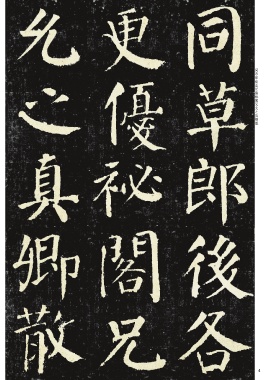 同草郎後各
更優祕閣兄
允之真卿散